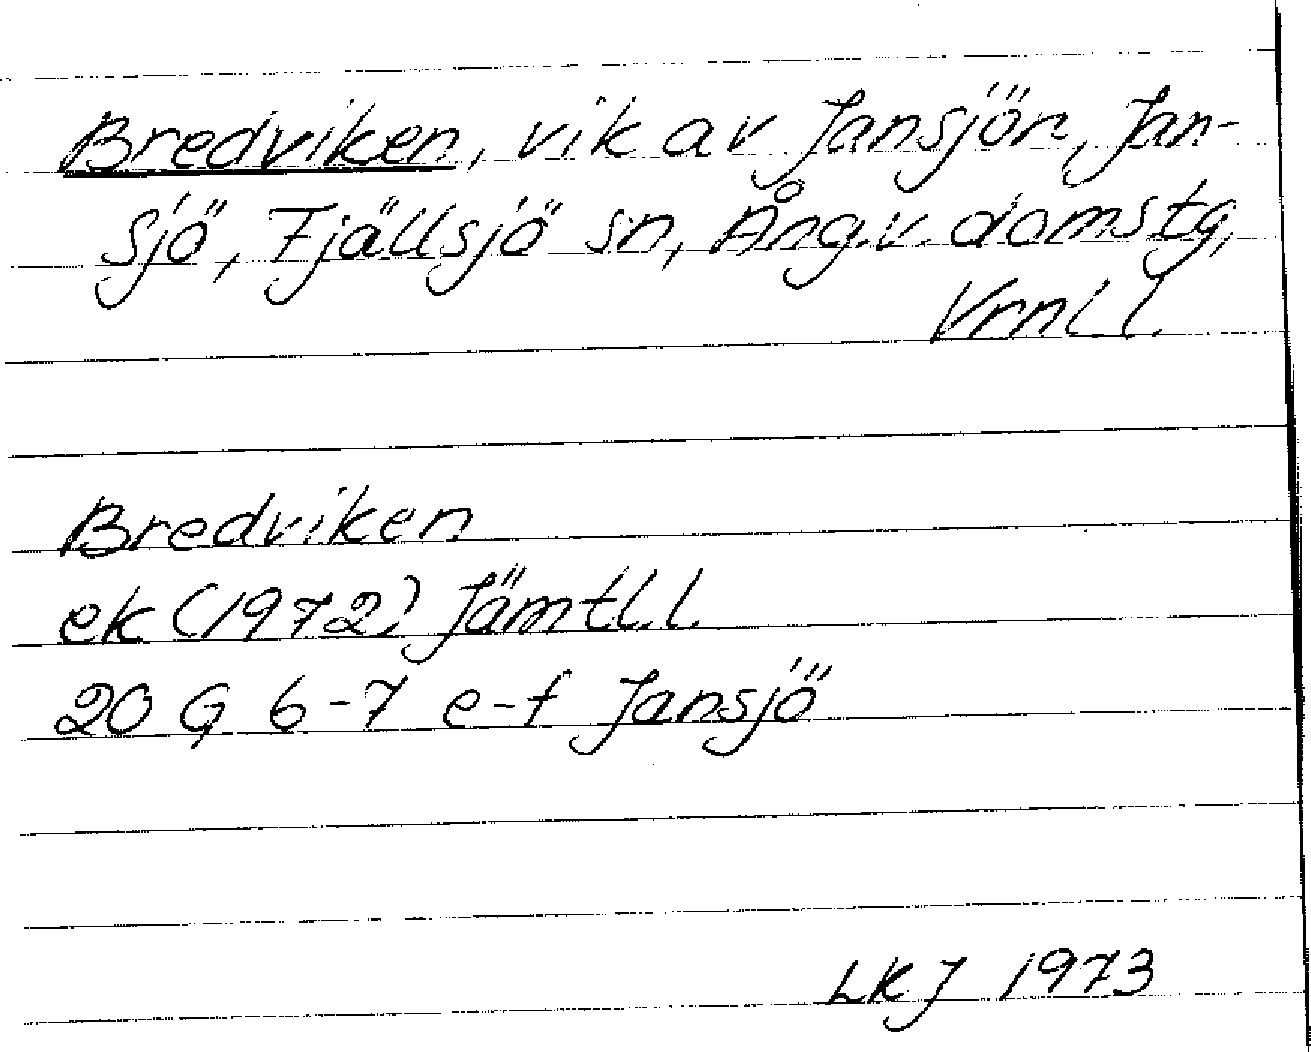 Bredviken, vik av Jansjön, Jan-
sjö, Fjällsjö sn, Ång.v. domstg,
Vrnl l.
Bredviken
ek (1972) Jämtl. l.
20 G 6-7 e-f Jansjö
LKJ 1973